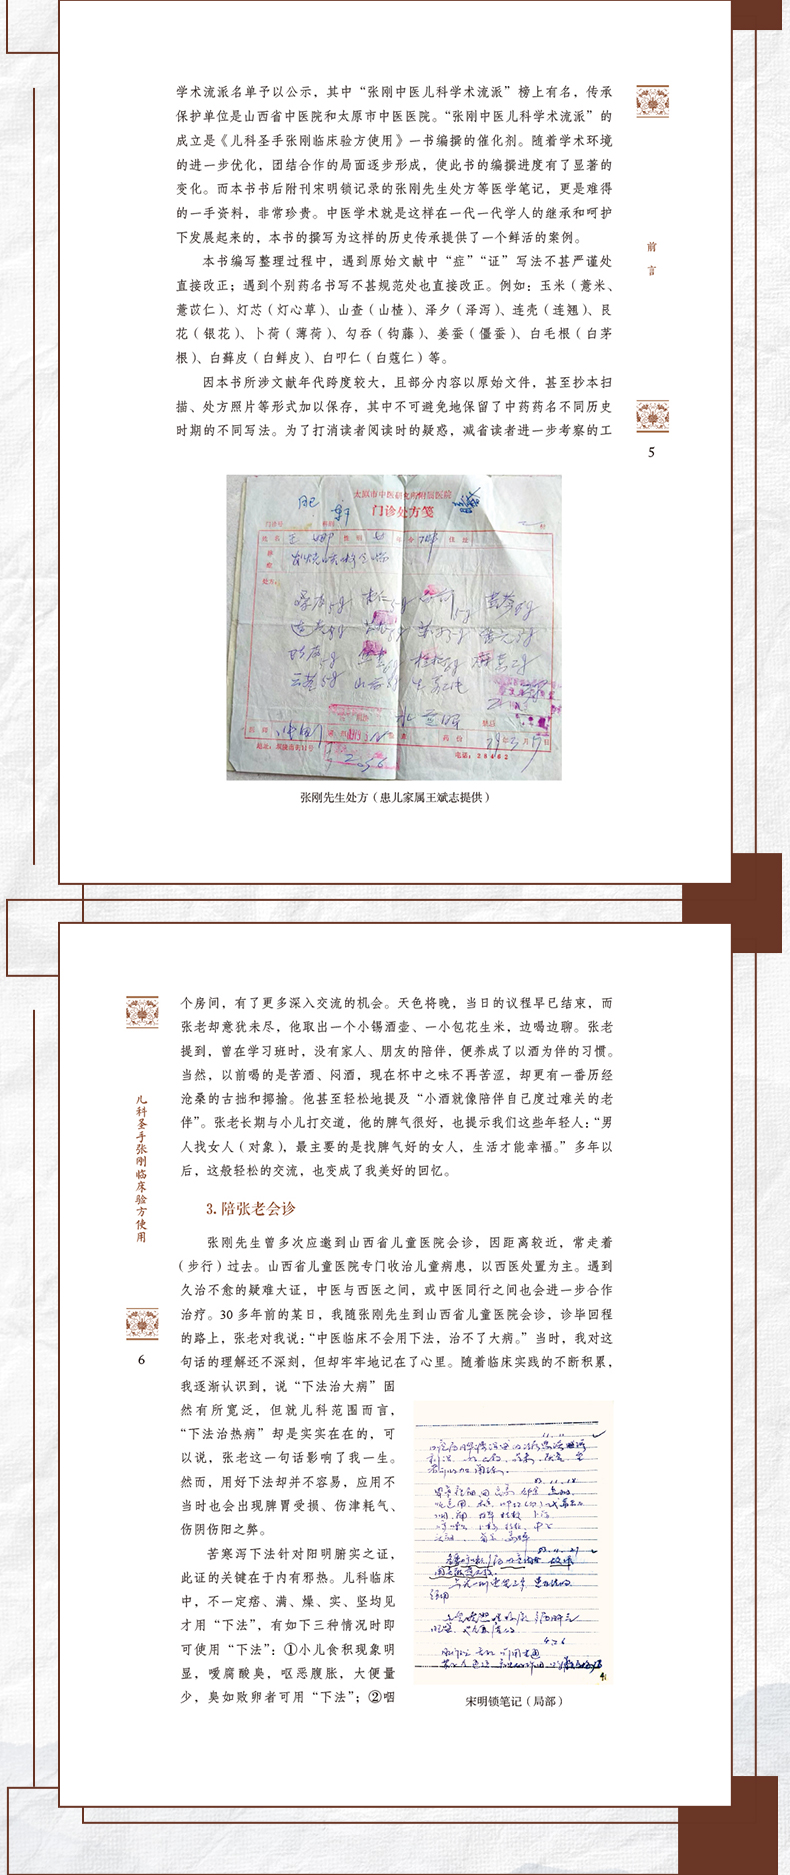 学术流派名单予以公示，其中“张刚中医儿科学术流派”榜上有名，传承
保护单位是山西省中医院和太原市中医医院。“张刚中医儿科学术流派”的
成立是《儿科圣手张刚临床验方使用》一书编撰的催化剂。随着学术环境
的进一步优化，团结合作的局面逐步形成，使此书的编撰进度有了显著的
变化。而本书书后附刊宋明锁记录的张刚先生处方等医学笔记，更是难得
的一手资料，非常珍贵。中医学术就是这样在一代一代学人的继承和呵护
下发展起来的，本书的撰写为这样的历史传承提供了一个鲜活的案例。
本书编写整理过程中，遇到原始文献中“症”“证”写法不甚严谨处
直接改正；遇到个别药名书写不甚规范处也直接改正。例如：玉米（薏米、
薏苡仁）、灯芯（灯心草）、山查（山楂）、泽夕（泽泻）、连壳（连翘）、艮
花（银花）、卜荷（薄荷）、勾吞（钩藤）、姜蚕（僵蚕）、白毛根（白茅
根）、白藓皮（白鲜皮）、白叩仁（白蔻仁）等。
因本书所涉文献年代跨度较大，且部分内容以原始文件，甚至抄本扫
描、处方照片等形式加以保存，其中不可避免地保留了中药药名不同历史
时期的不同写法。为了打消读者阅读时的疑惑，减省读者进一步考察的工
前言
5
太原市中医研究所附属医院
门诊处方笺
门诊号
姓名
性别 女
年令
住址
处方：
医师
药价
年3月17日
电话：28462
张刚先生处方（患儿家属王斌志提供）
儿科圣手张刚临床验方使用
6
个房间，有了更多深入交流的机会。天色将晚，当日的议程早已结束，而
张老却意犹未尽，他取出一个小锡酒壶、一小包花生米，边喝边聊。张老
提到，曾在学习班时，没有家人、朋友的陪伴，便养成了以酒为伴的习惯。
当然，以前喝的是苦酒、闷酒，现在杯中之味不再苦涩，却更有一番历经
沧桑的古拙和揶揄。他甚至轻松地提及“小酒就像陪伴自己度过难关的老
伴”。张老长期与小儿打交道，他的脾气很好，也提示我们这些年轻人：“男
人找女人（对象），最主要的是找脾气好的女人，生活才能幸福。”多年以
后，这般轻松的交流，也变成了我美好的回忆。
3. 陪张老会诊
张刚先生曾多次应邀到山西省儿童医院会诊，因距离较近，常走着
（步行）过去。山西省儿童医院专门收治儿童病患，以西医处置为主。遇到
久治不愈的疑难大证，中医与西医之间，或中医同行之间也会进一步合作
治疗。30 多年前的某日，我随张刚先生到山西省儿童医院会诊，诊毕回程
的路上，张老对我说：“中医临床不会用下法，治不了大病。”当时，我对这
句话的理解还不深刻，但却牢牢地记在了心里。随着临床实践的不断积累，
我逐渐认识到，说“下法治大病”固
然有所宽泛，但就儿科范围而言，
“下法治热病”却是实实在在的，可
以说，张老这一句话影响了我一生。
然而，用好下法却并不容易，应用不
当时也会出现脾胃受损、伤津耗气、
伤阴伤阳之弊。
苦寒泻下法针对阳明腑实之证，
此证的关键在于内有邪热。儿科临床
中，不一定痞、满、燥、实、坚均见
才用“下法”，有如下三种情况时即
可使用“下法”：①小儿食积现象明
显，嗳腐酸臭，呕恶腹胀，大便量
少，臭如败卵者可用“下法”；②咽
宋明锁笔记（局部）